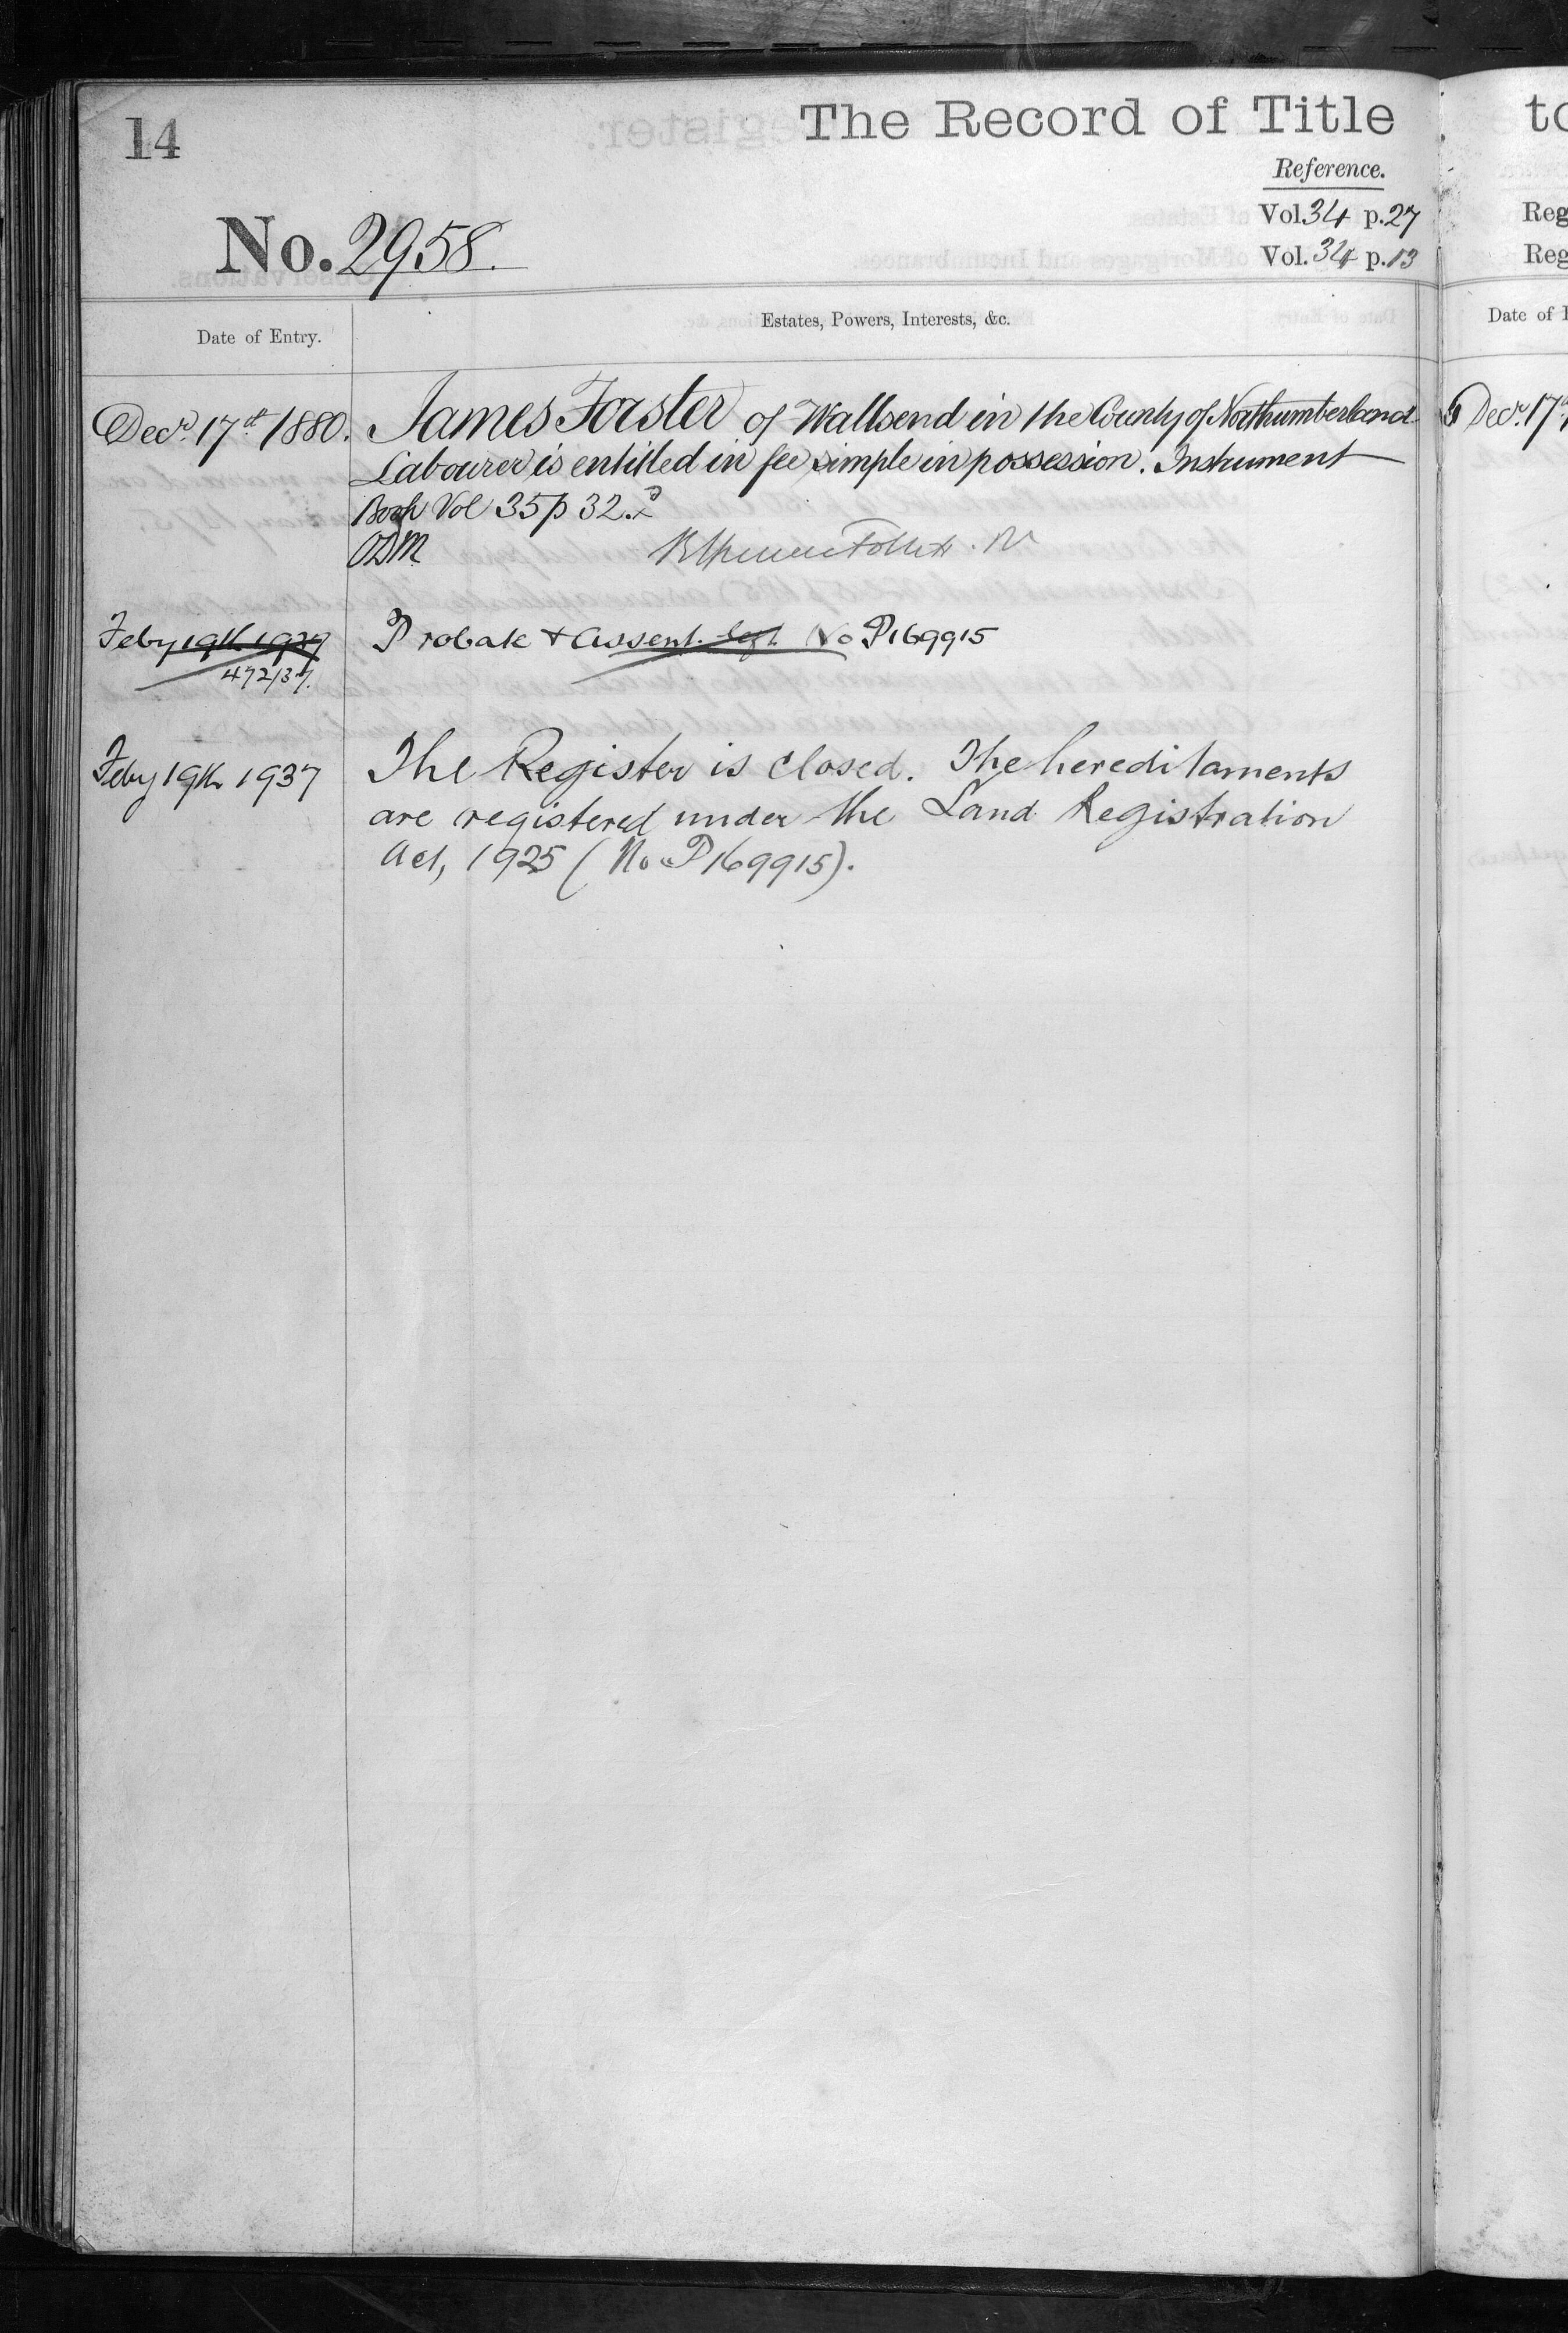 14
The Record of Title
Reference.
Vol. 34 p. 27
No. 2958.
Vol. 34 p. 13
Date of Entry.
Estates, Powers, Interests, &c.
Decr. 17th 1880.
James Forster of Wallsend in the County of Northumberland
Labourer is entitled in fee simple in possession. Instrument
Book Vol 35 p 32.
Feby 19th 1937
472/37.
Probate + Assent. No P169915
Feby 19th 1937
The Register is closed. The hereditaments
are registered under the Land Registration
Act, 1925 (No P169915).
to
Reg
Reg
Date of
Decr. 17